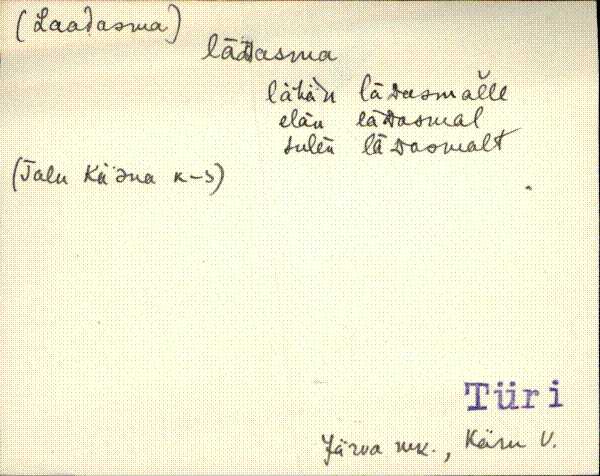 (Laadasma)
lāDasma
lähän lāDasmălle
elän lāDasmal
tulen lāDasmalt
(Talu Käsna k-s)
Türi
Järva mk., Käru v.